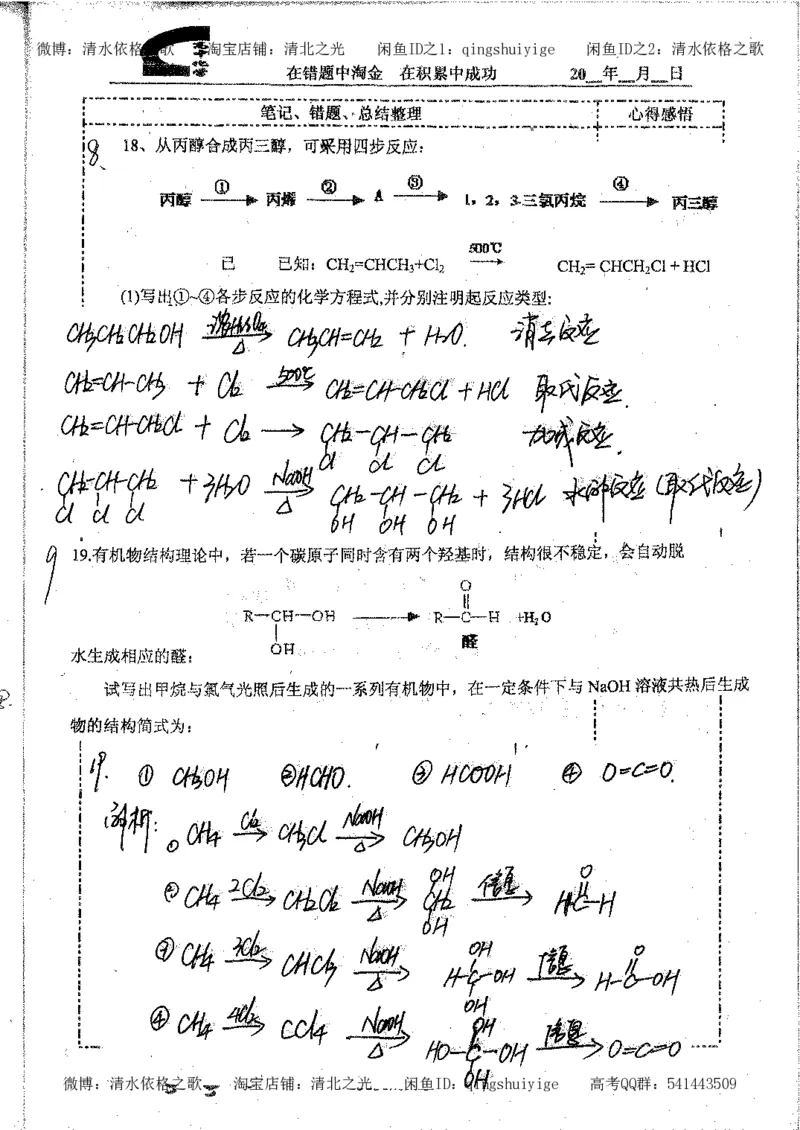 微博：清水依格之歌 淘宝店铺：清北之光 闲鱼ID之1：qingshuiyige 闲鱼ID之2：清水依格之歌
在错题中淘金 在积累中成功 20__年__月__日
笔记、错题、总结整理 心得感悟
8、
18、从丙醇合成丙三醇，可采用四步反应：
丙醇 ①→ 丙烯 ②→ A ③→ 1，2，3-三氯丙烷 ④→ 丙三醇
已 已知：CH₂=CHCH₃+Cl₂ 500℃→ CH₂= CHCH₂Cl + HCl
(1)写出①~④各步反应的化学方程式,并分别注明起反应类型:
CH₃CH₂CH₂OH 浓H₂SO₄→△ CH₃CH=CH₂ + H₂O. 消去反应
CH₂=CH-CH₃ + Cl₂ 500℃→ CH₂=CH-CH₂Cl + HCl 取代反应.
CH₂=CH-CH₂Cl + Cl₂ → CH₂-CH-CH₂ 加成反应.
Cl Cl Cl
CH₂-CH-CH₂ + 3H₂O NaOH→△ CH₂-CH-CH₂ + 3HCl 水解反应(取代反应)
Cl Cl Cl OH OH OH
9
19.有机物结构理论中，若一个碳原子同时含有两个羟基时，结构很不稳定，会自动脱
O
R—CH—OH → R—C—H +H₂O
OH 醛
水生成相应的醛；
试写出甲烷与氯气光照后生成的一系列有机物中，在一定条件下与 NaOH 溶液共热后生成
物的结构简式为：
19. ① CH₃OH ②HCHO. ③ HCOOH ④ O=C=O.
解析：
①CH₄ Cl₂→ CH₃Cl NaOH→△ CH₃OH
OH O
②CH₄ 2Cl₂→ CH₂Cl₂ NaOH→△ CH₂ 信息→ H-C-H
OH
OH O
③CH₄ 3Cl₂→ CHCl₃ NaOH→△ H-C-OH 信息→ H-C-OH
OH
OH
④CH₄ 4Cl₂→ CCl₄ NaOH→△ HO-C-OH 信息→ O=C=O
OH
微博：清水依格之歌 淘宝店铺：清北之光 闲鱼ID：qingshuiyige 高考QQ群：541443509